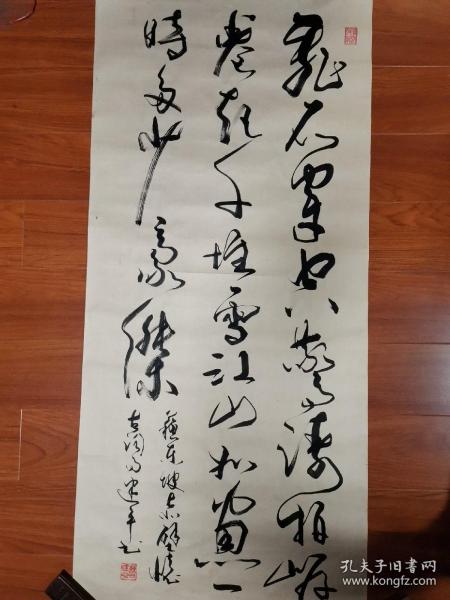 亂石穿空驚濤拍岸
卷起千堆雪江山如畫一
時多少豪傑
蘇東坡赤壁懷
古
孔夫子旧书网
www.kongfz.com